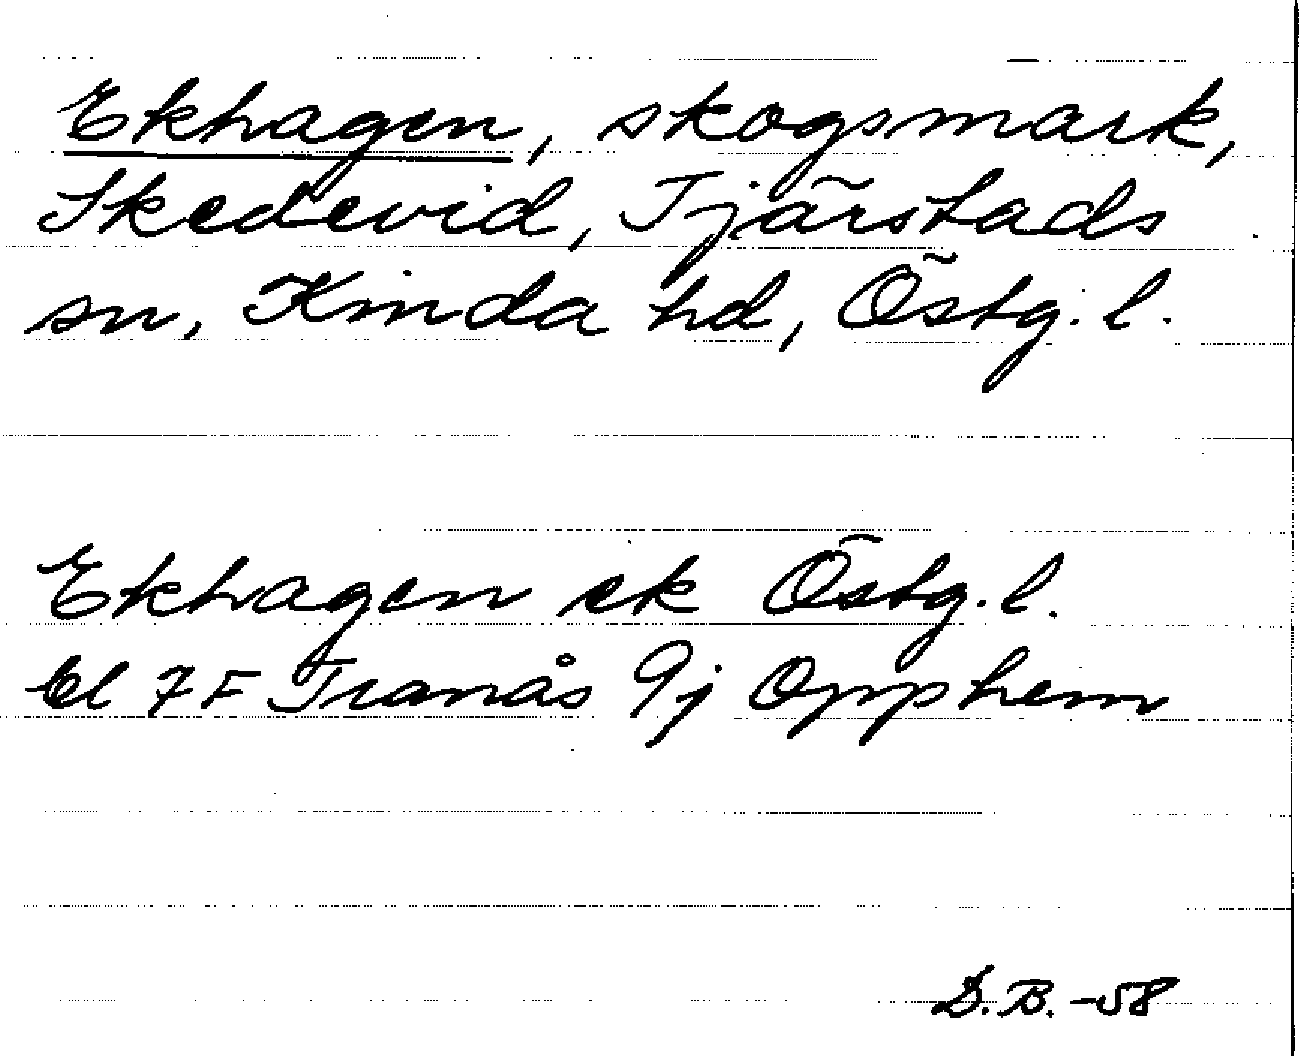 Ekhagen, skogsmark,
Skedevid, Tjärstads
sn, Kinda hd, Östg. l.
Ekhagen ek Östg. l.
bl 7 F Tranås 9j Opphem
D.B. -58